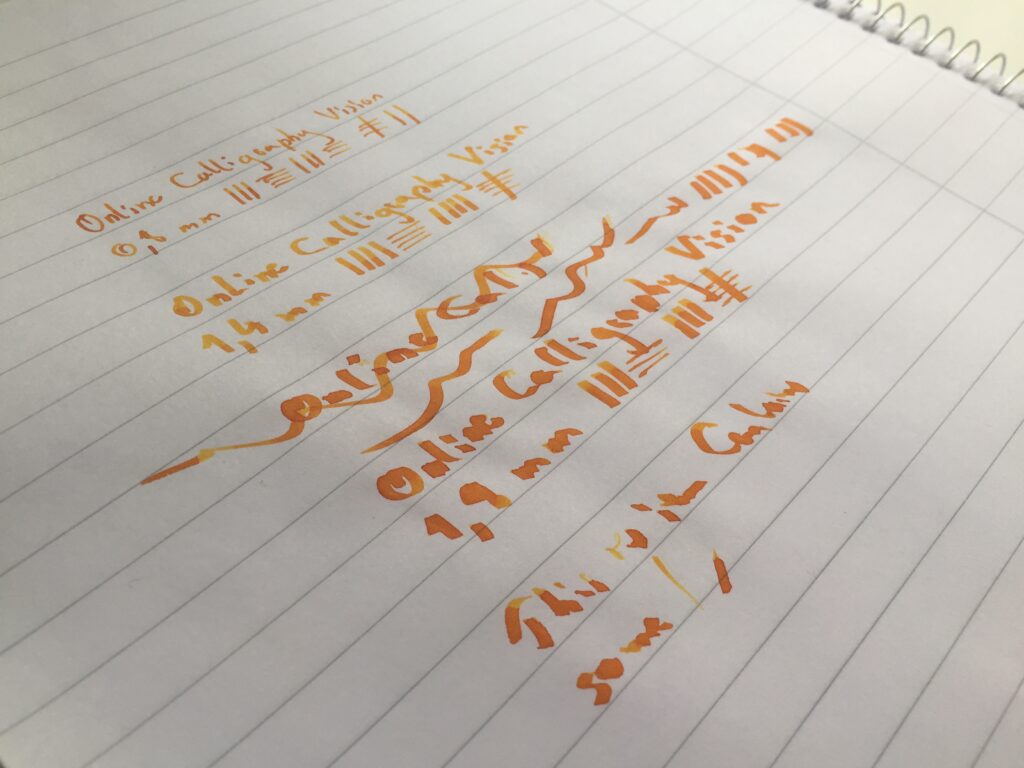 Online Calligraphy Vision
0,8 mm
Online Calligraphy Vision
1,4 mm
Online
Online Calligraphy Vision
1,9 mm
This is
some